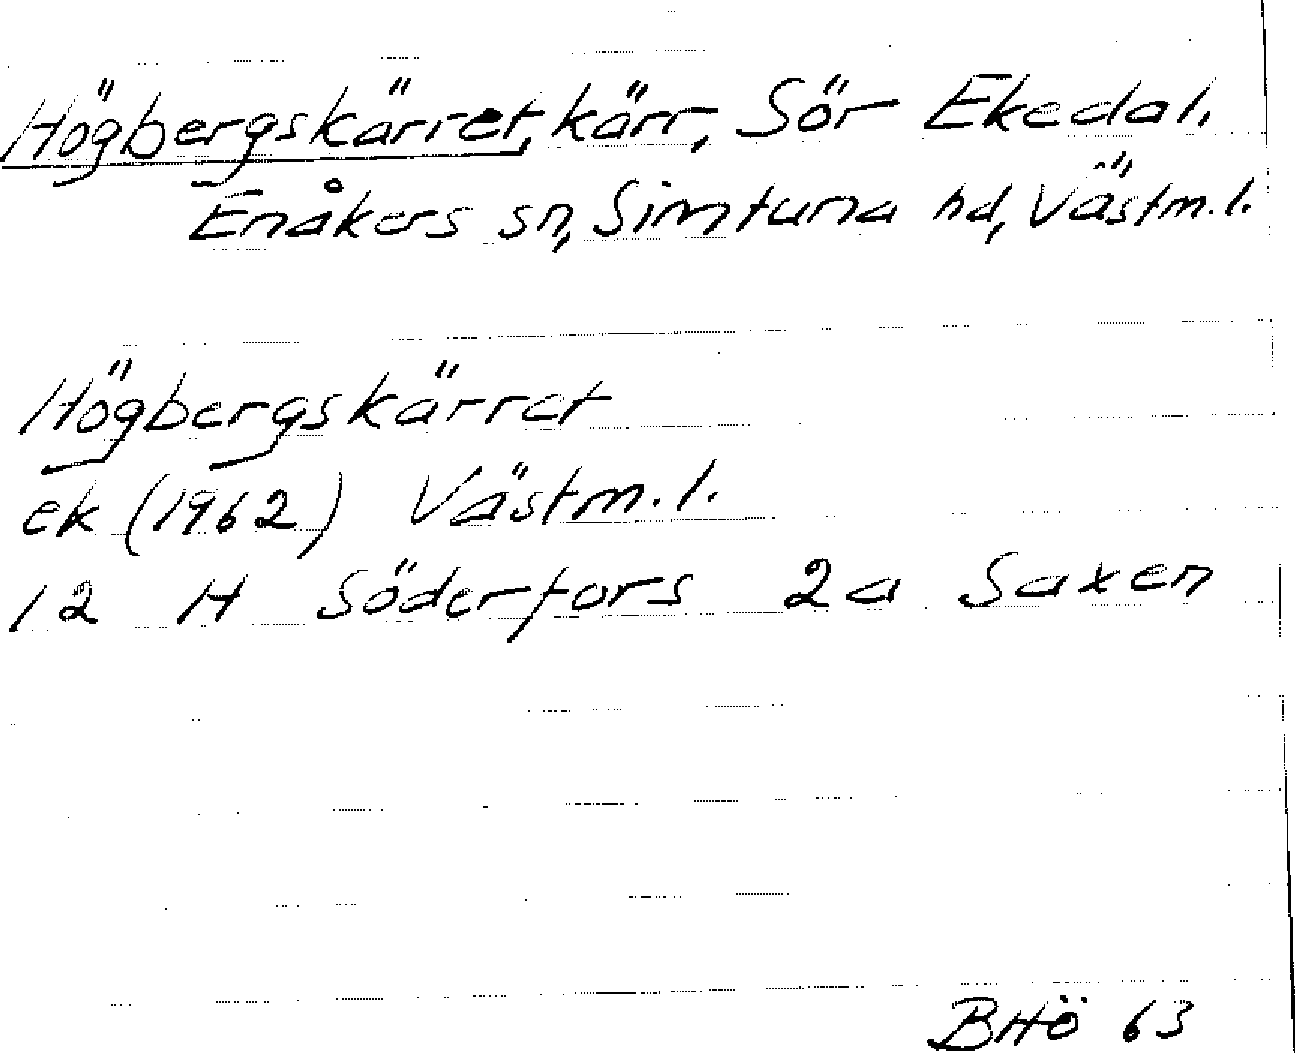 Högbergskärret, kärr, Sör Ekedal.
Enåkers sn, Simtuna hd, Västm.l.
Högbergskärret
ek (1962) Västm.l.
12 H Söderfors 2a Saxen
BHÖ 63